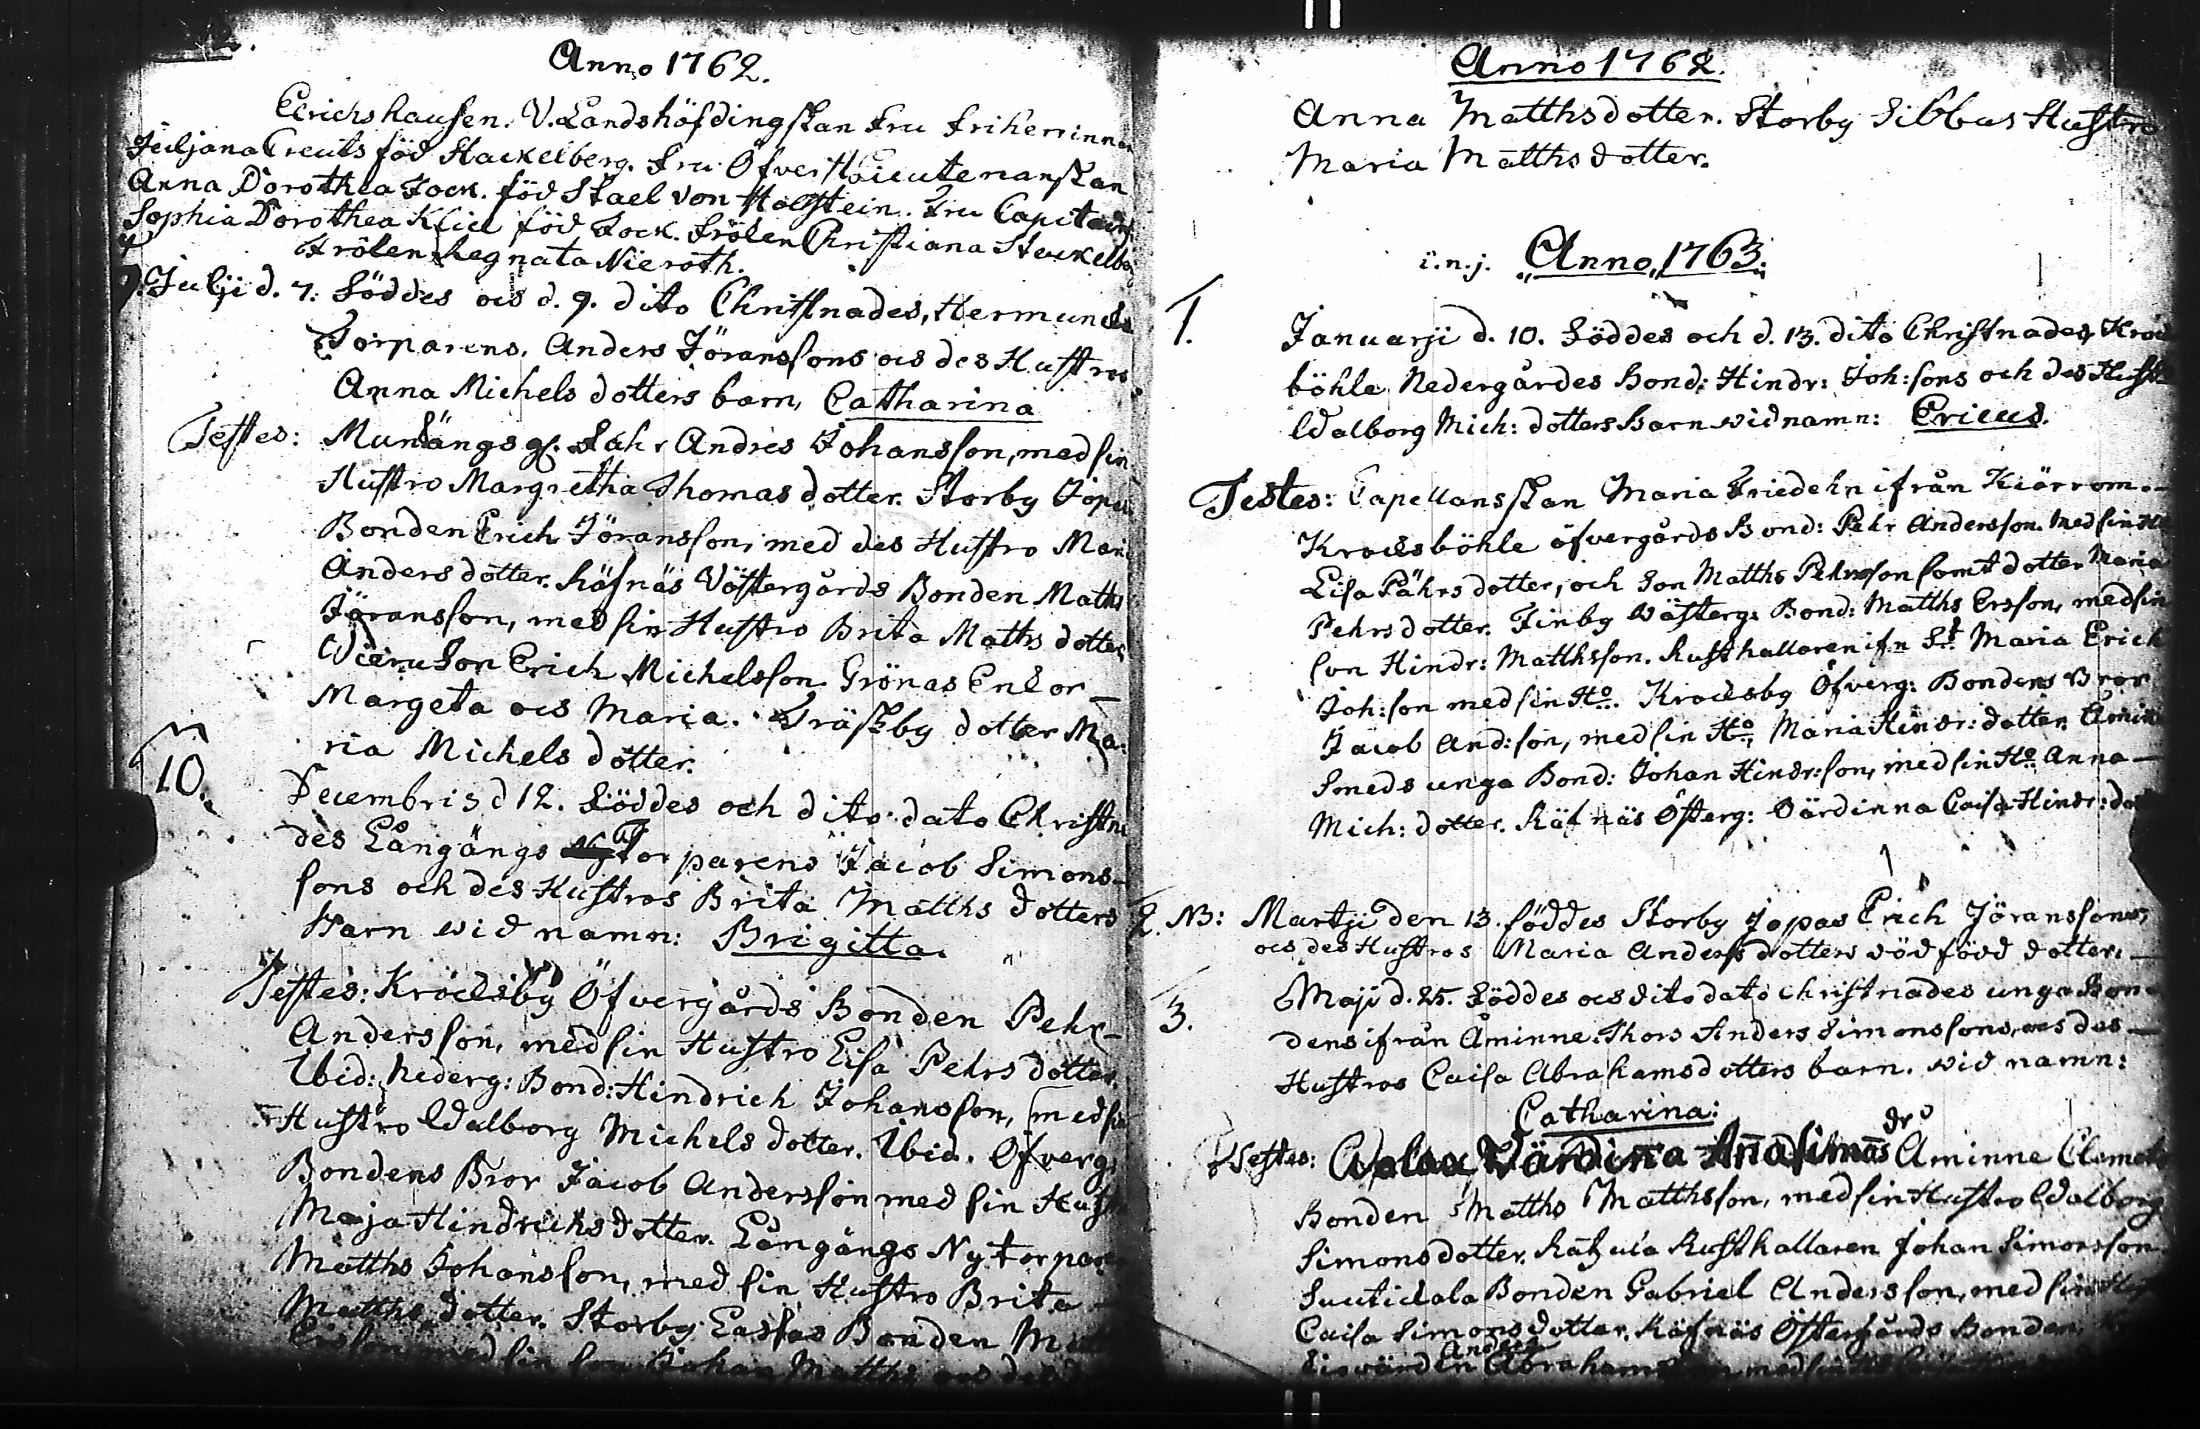 Anno 1762.
Erichshausen. V. Landshöfdingskan Fru Friherrinnan
Juljana Creuts föd Stackelberg. Fru Öfverst Lieutenanskan
Anna Dorothea Fock. föd Stael von Holstein. Fru Capitens
Sophia Dorothea Klick föd Fock. Frölen Christiana Stackelbe
Frölen Regnata Nieroth.
9. Julji d. 7. Föddes och d. 9. dito Christnades, Hermunds
Torparens, Anders Jöranssons och des Hustros
Anna Michels dotters barn, Catharina
Testes: Munkängs Andres Johansson, med sin
Hustro Margretha Thomas dotter. Storby Jopas
Bonden Erich Jöransson, med des Hustro Mari
Anders dotter. Räfnäs Västergårds Bonden Matths
Jöransson, med sin Hustro Brita Matths dotter
Son Erich Michelsson. Grönas Enkor
Margeta och Maria. Träskby dotter Ma:
ria Michels dotter.
10. Decembris d 12. Föddes och dito dato Christna
des Långängs Torparens Jacob Simons-
sons och des Hustros Brita Matths dotters
Barn wid namn: Brigitta.
Testes: Krocksby Öfvergårds Bonden Pehr
Andersson, med sin Hustro Lisa Pehrs dotter
Ibid: Nederg: Bond: Hindrich Johansson, med sin
Hustro Walborg Michels dotter. Ibid. Öfverg:
Bondens Bror Jacob Andersson med sin Hust
Maja Hindrichs dotter. Långängs Ny torpare
Matths Johansson, med sin Hustro Brita
Matths dotter. Storby Eassas Bonden Matt
Ersson med sin son Johan Matths
Anno 1762.
Anna Matthsdotter. Storby Sibbas Hustro
Maria Matths dotter.
i.n.j. Anno 1763.
1. Januarji d. 10. Föddes och d. 13. dito Christnades, Krocks
böhle Nedergårdes Bond: Hindr: Joh:sons och des Hust
Walborg Mich: dotters Barn wid namn: Ericus.
Testes: Capellanskan Maria Friedehn ifrån Kiärrom.
Krocksböhle öfvergårds Bond: Pehr Andersson. med sin H
Lisa Pährs dotter, och Son Matths Pehrsson samt dotter Maria
Pehrs dotter. Finby Wästerg: Bond: Matths Ersson, med sin
son Hindr: Matthsson. Rusthallaren ifn St Maria Erich
Joh:son med sin Ho. Krocksby Öfverg: Bondens Bror
Jacob And:son, med sin Ho, Maria Hindr: dotter. Åminne
Smeds unga Bond: Johan Hindr:son, med sin Ho Anna
Mich: dotter. Räfnäs Österg: Värdinna Caisa Hindr: dott
2. NB: Martji den 13. föddes Storby Jopas Erich Jöranssons,
och des Hustros Maria Anders dotters död född dotter.
3. Maji d. 25. Föddes och dito dato christnades unga Bon
dens ifrån Åminne. Thors Anders Simonssons, och des
Hustros Caisa Abrahamsdotters barn. wid namn:
Catharina:
Testes: Värdinna Anna Simons dr Åminne Clemets
Bonden Matths Matthsson, med sin Hustro Walborg
Simonsdotter. Rusthallaren Johan Simonsson
Bonden Gabriel Andersson, med sin
Caisa Simonsdotter. Räfnäs Östergårds Bonden
Anders
Abrahamsson med sin